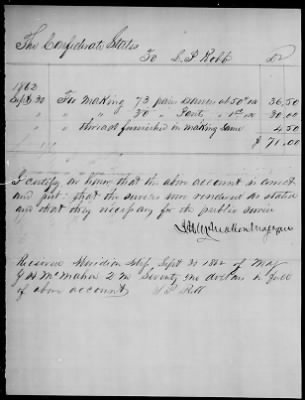 The Confederate States
To S. P. Robb Dr
1862
Sept 30 For Making 73 pairs Drawers at 50c 36.50
" " " 30 " Pants " 1.00 30.00
" " thread furnished in making same 4.50
$71.00
I certify on honor that the above account is correct
and just; that the services were rendered as stated
and that they necessary for the public service
Received Meridian Sept 30 1862 of Maj
McMahon 2 M Seventy one dollars in full
of above account
S. P. Robb